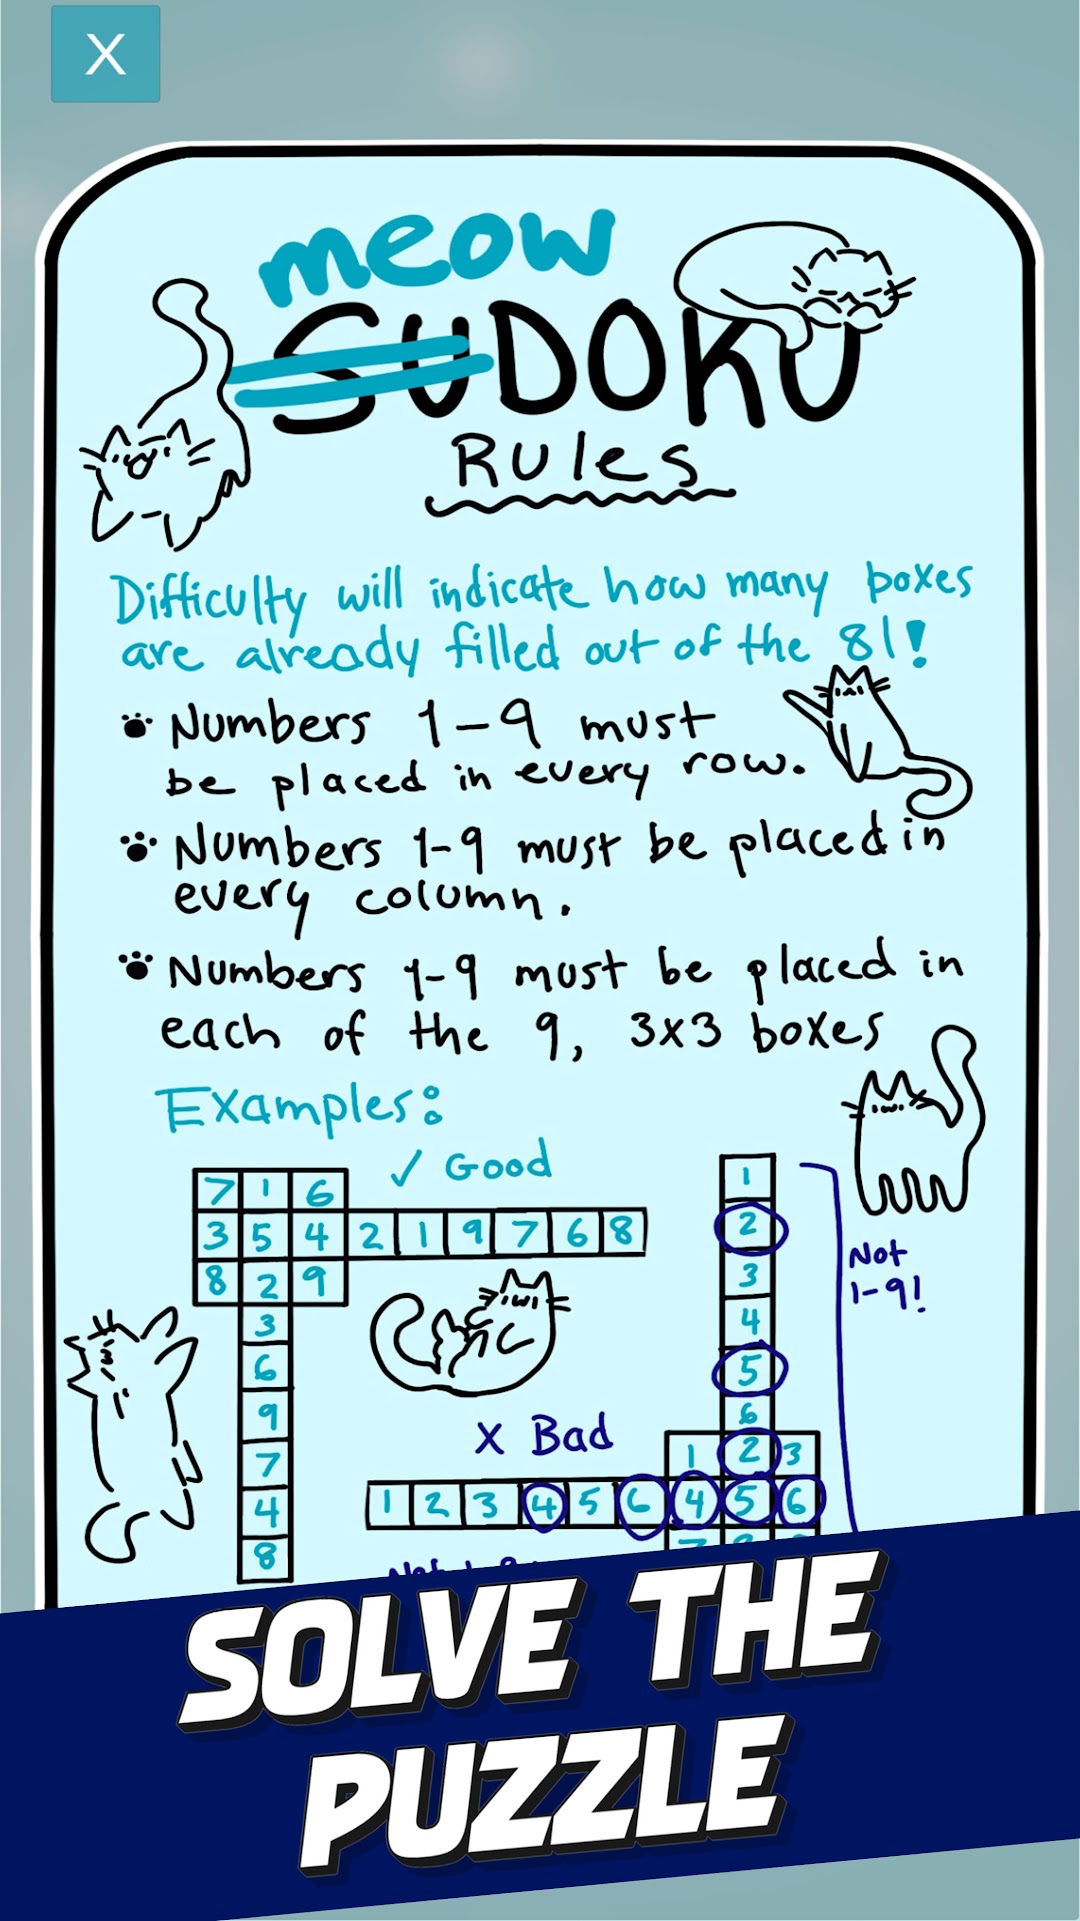 X
meow
SUDOKU
Rules
Difficulty will indicate how many boxes
are already filled out of the 81!
Numbers 1-9 must
be placed in every row.
Numbers 1-9 must be placed in
every column.
Numbers 1-9 must be placed in
each of the 9, 3x3 boxes
Examples:
✓ Good
7 1 6
3 5 4 2 1 9 7 6 8
8 2 9
3
6
9
7
4
8
1
2
3
4
5
6
Not
1-9!
X Bad
1 2 3
1 2 3 4 5 6 4 5 6
SOLVE THE
PUZZLE